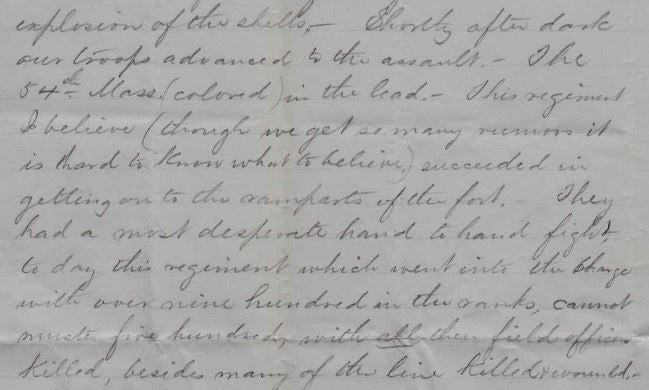 explosion of the shells,- Shortly after dark
our troops advanced to the assault.- The
54th Mass. (colored) in the lead.- This regiment
I believe (though we get so many rumors it
is hard to know what to believe,) succeeded in
getting on to the ramparts of the fort.- They
had a most desperate hand to hand fight,
to day this regiment which went into the charge
with over nine hundred in the ranks, cannot
muster five hundred, with all their field officers
killed, besides many of the line killed & wounded.-